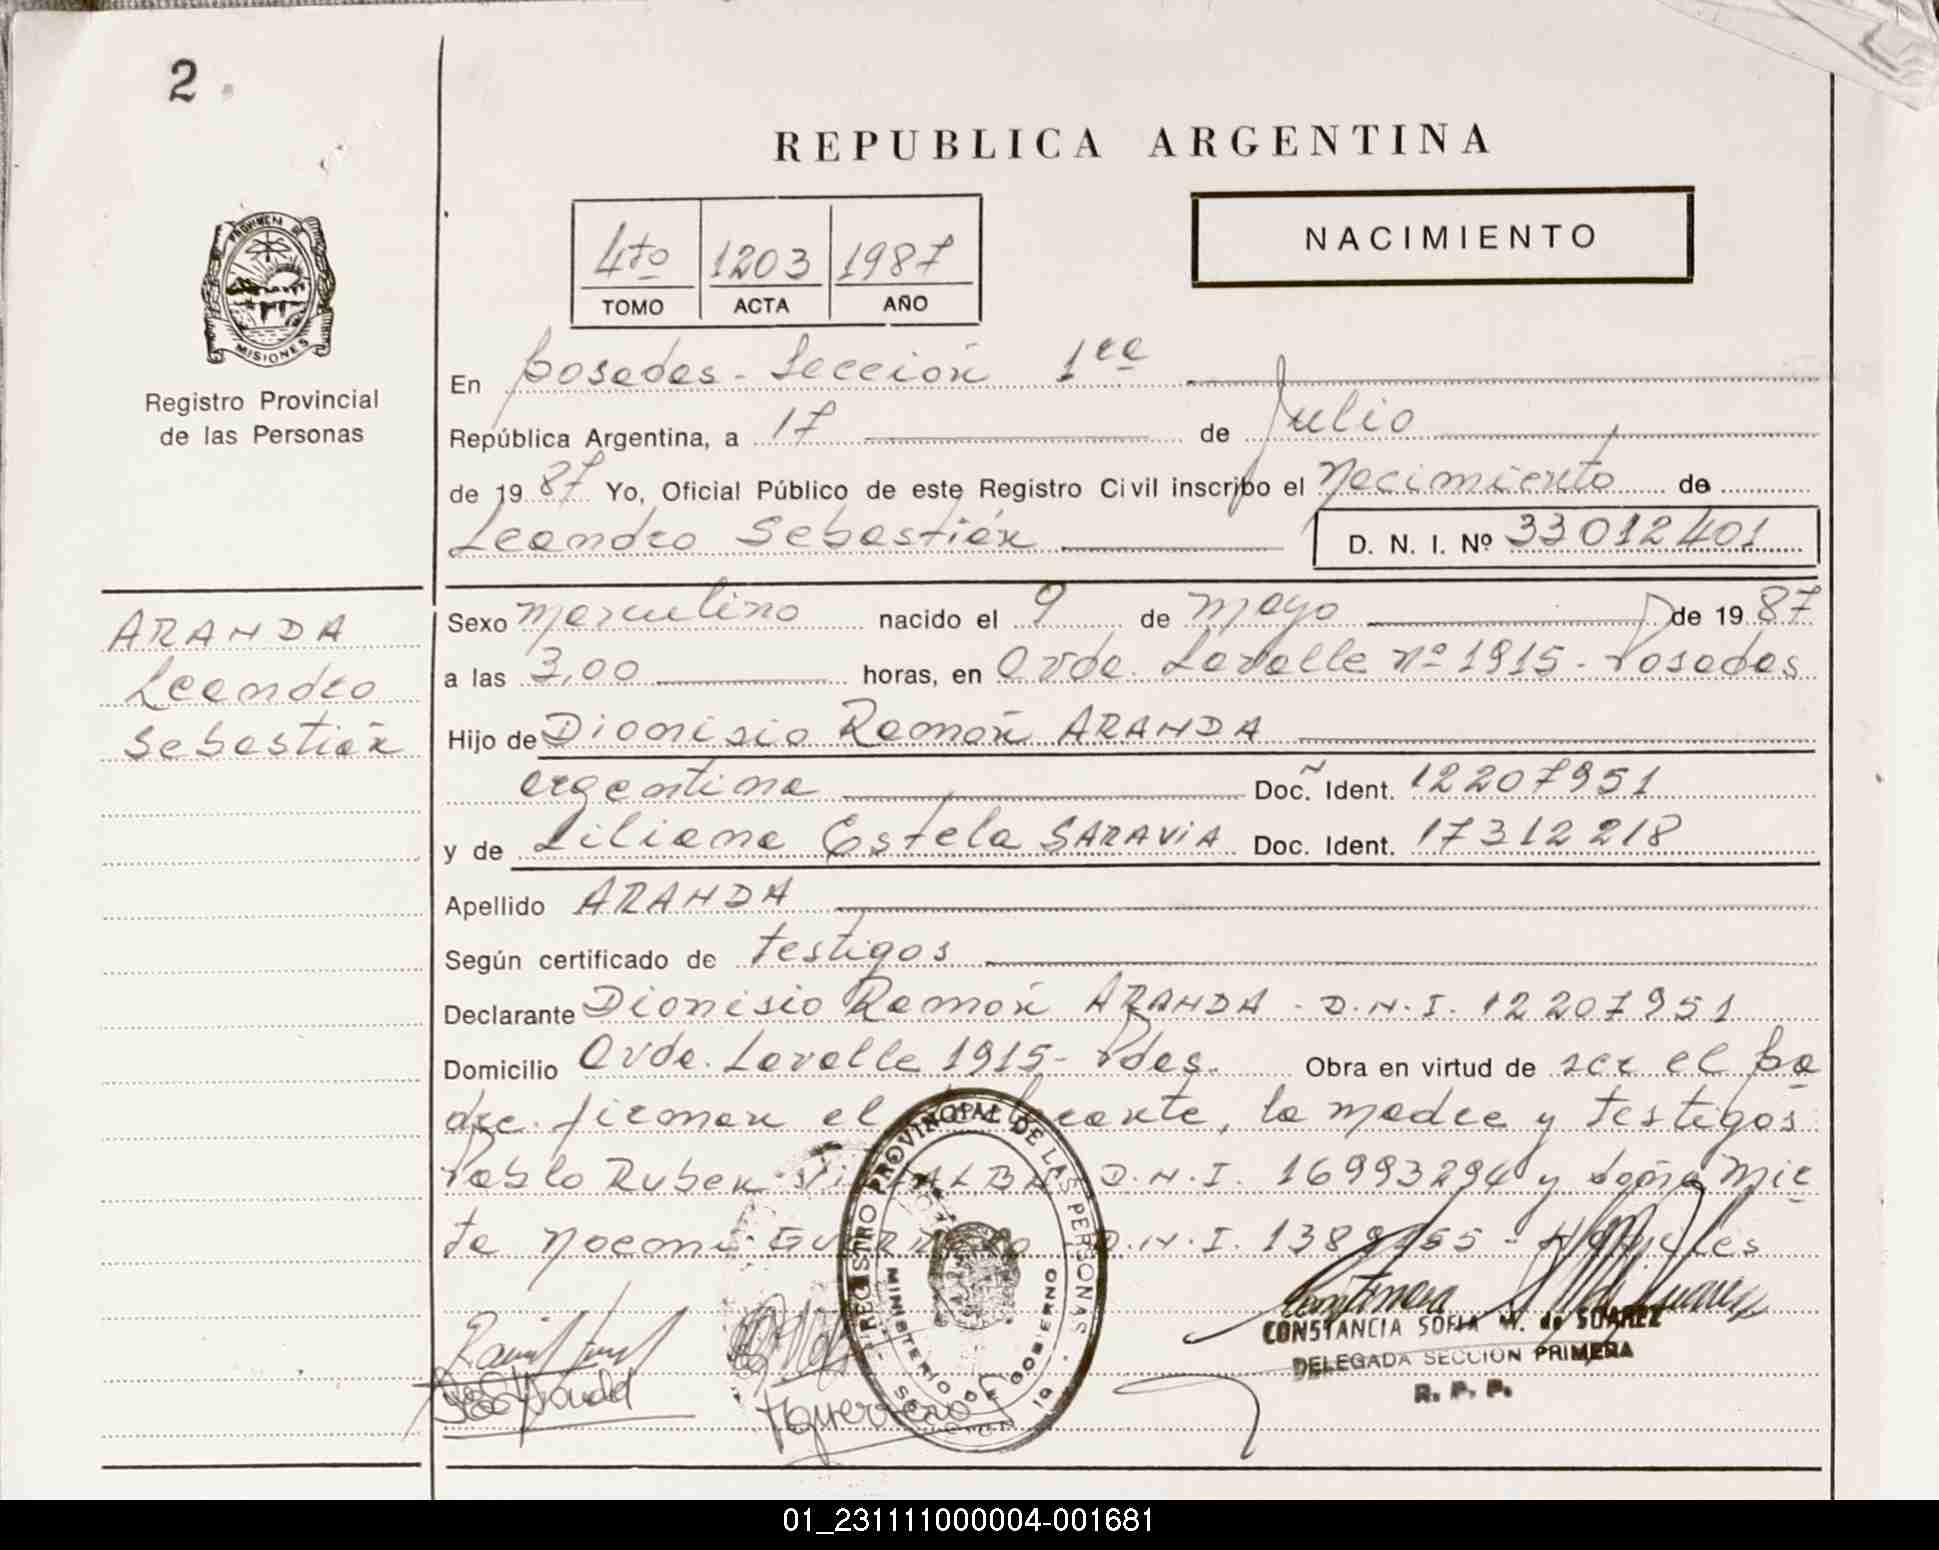 2
REPUBLICA ARGENTINA
NACIMIENTO
4to 1203 1987
TOMO ACTA AÑO
PROVINCIA DE
MISIONES
Registro Provincial
de las Personas
En Posadas - Sección 1ra
República Argentina, a 17 de Julio
de 1987 Yo, Oficial Público de este Registro Civil inscribo el Nacimiento de
Leandro Sebastián D. N. I. Nº 33012401
ARANDA
Leandro
Sebastián
Sexo masculino nacido el 9 de mayo de 1987
a las 3,00 horas, en Avda. Lavalle nº 1915 - Posadas
Hijo de Dionisio Ramón ARANDA
argentina Doc. Ident. 12207951
y de Liliana Estela SARAVIA Doc. Ident. 17312218
Apellido ARANDA
Según certificado de testigos
Declarante Dionisio Ramón ARANDA - D.N.I. 12207951
Domicilio Avda. Lavalle 1915 - Pdas. Obra en virtud de ser el pa
dre. firman el, la madre y testigos
Pablo Ruben D.N.I. 16993294 y doña Mir
ta Noemi D.N.I.
REGISTRO PROVINCIAL DE LAS PERSONAS
MINISTERIO DE GOBIERNO
CONSTANCIA SOFIA M. de SUAREZ
DELEGADA SECCION PRIMERA
R. P. P.
01_231111000004-001681